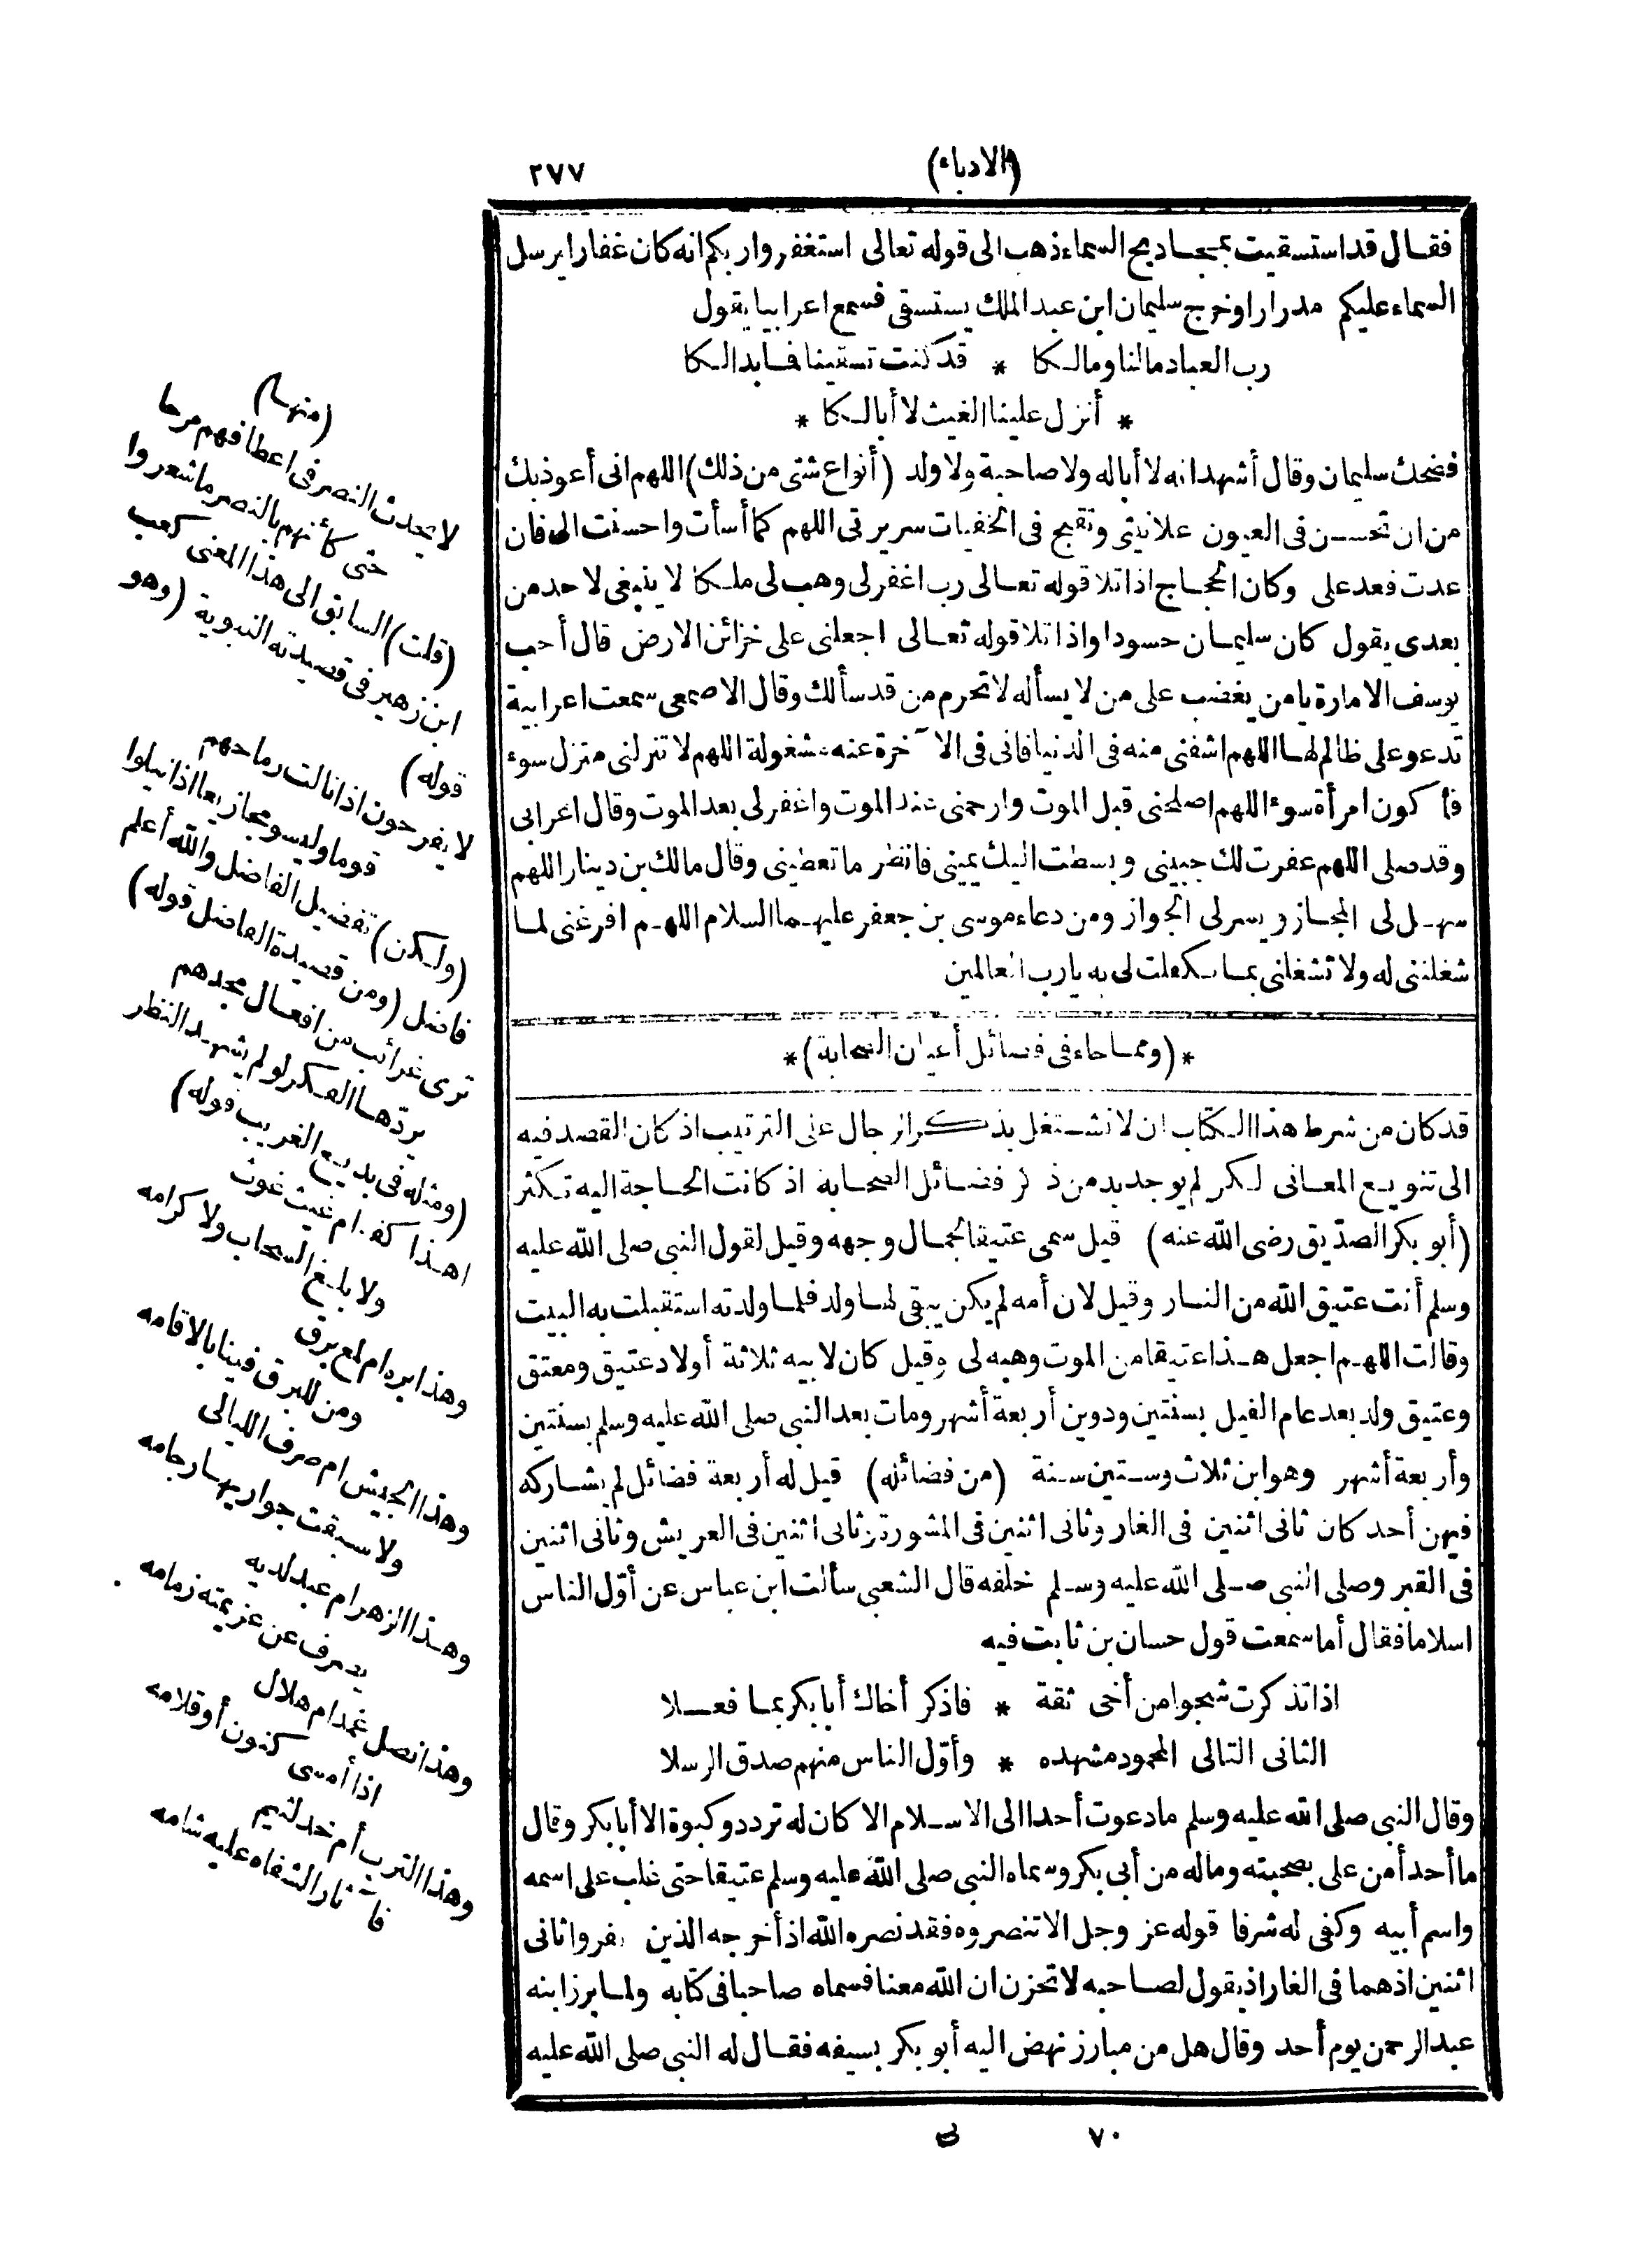 (الادباء)
٢٧٧
فقال قد استسقيت بمجاديح السماء ذهب الى قوله تعالى استغفروا ربكم انه كان غفارا يرسل
السماء عليكم مدرارا وخرج سليمان ابن عبد الملك يستسقى فسمع اعرابيا يقول
رب العباد مالنا ومالكا * قد كنت تسقينا فما بدا لكا
* أنزل علينا الغيث لا أبا لكا *
فضحك سليمان وقال أشهد انه لا أبا له ولا صاحبة ولا ولد (أنواع شتى من ذلك) اللهم انى أعوذ بك
من ان تحسن فى العيون علانيتى وتقبح فى الخفيات سريرتى اللهم كما أسأت واحسنت الى فان
عدت فعد على وكان الحجاج اذا تلا قوله تعالى رب اغفر لى وهب لى ملكا لا ينبغى لاحد من
بعدى يقول كان سليمان حسودا واذا تلا قوله تعالى اجعلنى على خزائن الارض قال أحب
يوسف الامارة يا من يغضب على من لا يسأله لا تحرم من قد سألك وقال الاصمعى سمعت اعرابية
تدعو على ظالم لها اللهم اشفنى منه فى الدنيا فانى فى الآخرة عنه مشغولة اللهم لا تنزلنى منزل سوء
فأ كون امرأة سوء اللهم اصلحنى قبل الموت وارحمنى عند الموت واغفر لى بعد الموت وقال اعرابى
وقد صلى اللهم عفرت لك جبينى وبسطت اليك يمينى فانظر ما تعطينى وقال مالك بن دينار اللهم
سهل لى المجاز ويسر لى الجواز ومن دعاء موسى بن جعفر عليهما السلام اللهم افرغنى لما
شغلتنى له ولا تشغلنى بما تكفلت لى به يا رب العالمين
*(ومما جاء فى فضائل أعيان الصحابة)*
قد كان من شرط هذا الكتاب ان لا نشتغل بذكر الرجال على الترتيب اذ كان القصد فيه
الى تنويع المعانى لكن لم يوجد بد من ذكر فضائل الصحابة اذ كانت الحاجة اليه تكثر
(أبو بكر الصدّيق رضى الله عنه) قيل سمى عتيقا لجمال وجهه وقيل لقول النبى صلى الله عليه
وسلم أنت عتيق الله من النار وقيل لان أمه لم يكن يبقى لها ولد فلما ولدته استقبلت به البيت
وقالت اللهم اجعل هذا عتيقا من الموت وهبه لى وقيل كان لابيه ثلاثة أولاد عتيق ومعتق
وعتيق ولد بعد عام الفيل بسنتين ودوين أربعة أشهر ومات بعد النبى صلى الله عليه وسلم بسنتين
وأربعة أشهر وهو ابن ثلاث وستين سنة (من فضائله) قيل له أربعة فضائل لم يشاركه
فيهن أحد كان ثانى اثنين فى الغار وثانى اثنين فى المشورة وثانى اثنين فى العريش وثانى اثنين
فى القبر وصلى النبى صلى الله عليه وسلم خلفه قال الشعبى سألت ابن عباس عن أوّل الناس
اسلاما فقال أما سمعت قول حسان بن ثابت فيه
اذا تذكرت شجوا من أخى ثقة * فاذكر أخاك أبا بكر بما فعلا
الثانى التالى المحمود مشهده * وأوّل الناس منهم صدق الرسلا
وقال النبى صلى الله عليه وسلم ما دعوت أحدا الى الاسلام الا كان له تردد وكبوة الا أبا بكر وقال
ما أحد أمن على بصحبته وماله من أبى بكر وسماه النبى صلى الله عليه وسلم عتيقا حتى غلب على اسمه
واسم أبيه وكفى له شرفا قوله عز وجل الا تنصروه فقد نصره الله اذ أخرجه الذين كفروا ثانى
اثنين اذهما فى الغار اذ يقول لصاحبه لا تحزن ان الله معنا فسماه صاحبا فى كتابه ولما برز ابنه
عبد الرحمن يوم أحد وقال هل من مبارز نهض اليه أبو بكر بسيفه فقال له النبى صلى الله عليه
٧٠
(منها)
لا يحدث النصر فى اعطافهم مرحا
حتى كأنهم بالنصر ما شعروا
(قلت) السابق الى هذا المعنى كعب
ابن زهير فى قصيدته النبوية (وهو
قوله)
لا يفرحون اذا نالت رماحهم
قوما وليسو مجازيعا اذا نيلوا
(ولكن) تفضيل الفاضل والله أعلم
فاضل (ومن قصيدة الفاضل قوله)
ترى غرائب من افعال مجدهم
يردّها الفكر لو لم يشهد النظر
(ومثله فى بديع الغريب قوله)
اهذا كفه ام غيث غوث
ولا بلغ السحاب ولا كرامه
وهذا بره ام لمع برق
ومن للبرق فينا بالاقامه
وهذا الجيش ام صرف الليالى
ولا سبقت جواريها رجامه
وهذا الزهر ام عبد لديه
يصرف عن عزيمته زمامه
وهذا نصل غمد ام هلال
اذا أمسى كنون أو قلامه
وهذا الترب أم خد لثيم
فآثار الشفاه عليه شامه